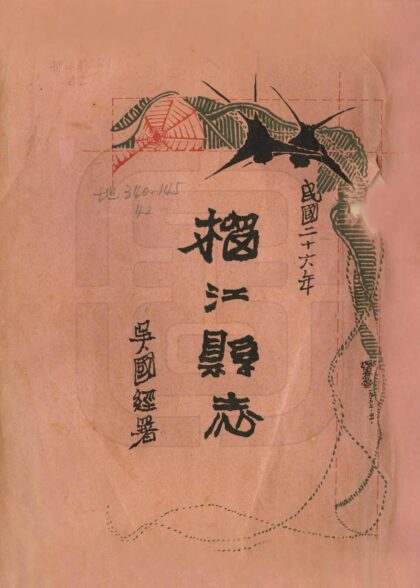 民國二十六年
榴江縣志
吳國經署
地 340.145
42